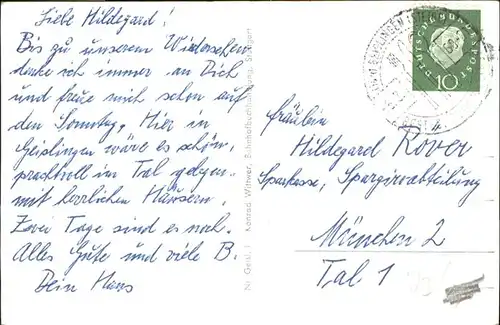 Liebe Hildegard!
Bis zu unserem Wiedersehen
denke ich immer an Dich
und freue mich schon auf
den Sonntag. Hier in
Geislingen wäre es schön,
prachtvoll im Tal gelegen
mit herrlichen Häusern.
Zwei Tage sind es noch.
Alles Gute und viele B.
Dein Hans
Konrad Wittwer, Bahnhofbuchhandlung, Stuttgart
DEUTSCHE BUNDESPOST
10
Fräulein
Hildegard Rover
Sparkasse, Spargiroabteilung
München 2
Tal 1